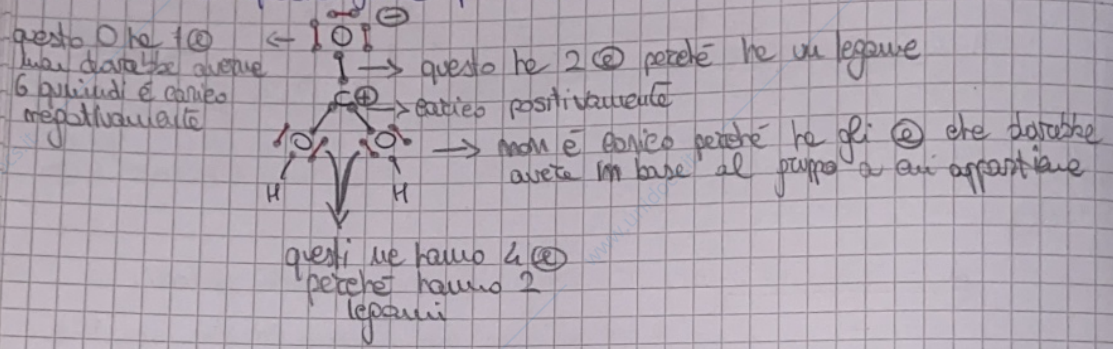 O ⊖
questo O ha 7 ⓔ ←
ma dovrebbe averne
6 quindi è carico
negativamente
→ questo ha 2 ⓔ perché ha un legame
C ⊕ → carico positivamente
O O → non è carico perché ha gli ⓔ che dovrebbe
avere in base al gruppo a cui appartiene
H H
questi ne hanno 4 ⓔ
perché hanno 2
legami